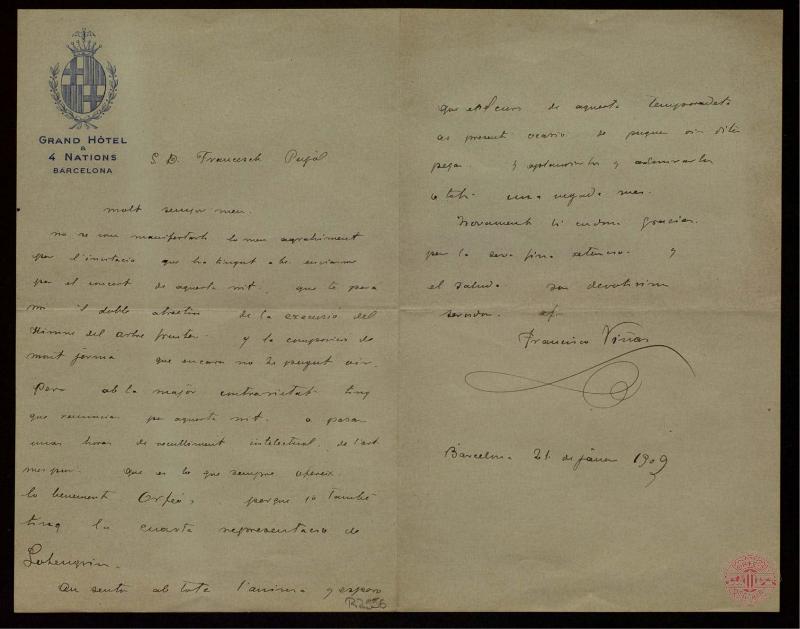 GRAND HÔTEL
&
4 NATIONS
BARCELONA
S. D. Francesch Pujol
molt senyor meu.
no se com manifestarli lo meu agrahiment
per l'invitació que ha tingut a be enviarme
per el concert de aquesta nit. que té para
mi 'l doble atractiu de la execució del
Himne del arbre fruiter. y la composició de
mort que encara no he pogut oir.
Pero ab la major contrarietat tinch
que renunciar per aquesta nit. a pasar
unas horas de reculliment intelectual. de l'art
mes pur. que es lo que sempre ofereix
lo benemerit Orfeó, porque jo també
tinq la cuarta representació de
Lohengrin.
Ou sento ab tota l'anima y espero
R.2556
que en el curs de aquesta temporadeta
es presenti ocasió de poguer oir
y aplaudirlos y admirarlos
a tots una vegada mes.
Novament li endono gracias.
per la seva fina atenció. y
el saluda son devotissim
servidor.
Francisco Viñas
Barcelona 21 de janer 1909